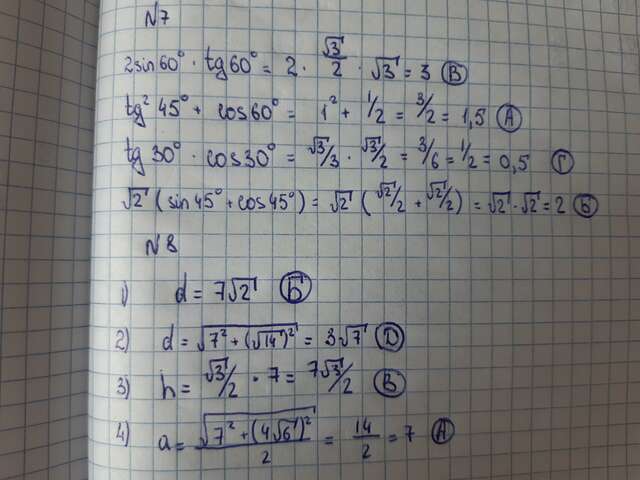 N7
2sin60° · tg60° = 2 · √3/2 · √3 = 3 (В)
tg² 45° + cos60° = 1² + 1/2 = 3/2 = 1,5 (А)
tg30° · cos30° = √3/3 · √3/2 = 3/6 = 1/2 = 0,5 (Г)
√2 (sin45° + cos45°) = √2 (√2/2 + √2/2) = √2 · √2 = 2 (Б)
N8
1) d = 7√2 (Б)
2) d = √7² + (√14)² = 3√7 (D)
3) h = √3/2 · 7 = 7√3/2 (В)
4) a = √7² + (4√6)²/2 = 14/2 = 7 (А)